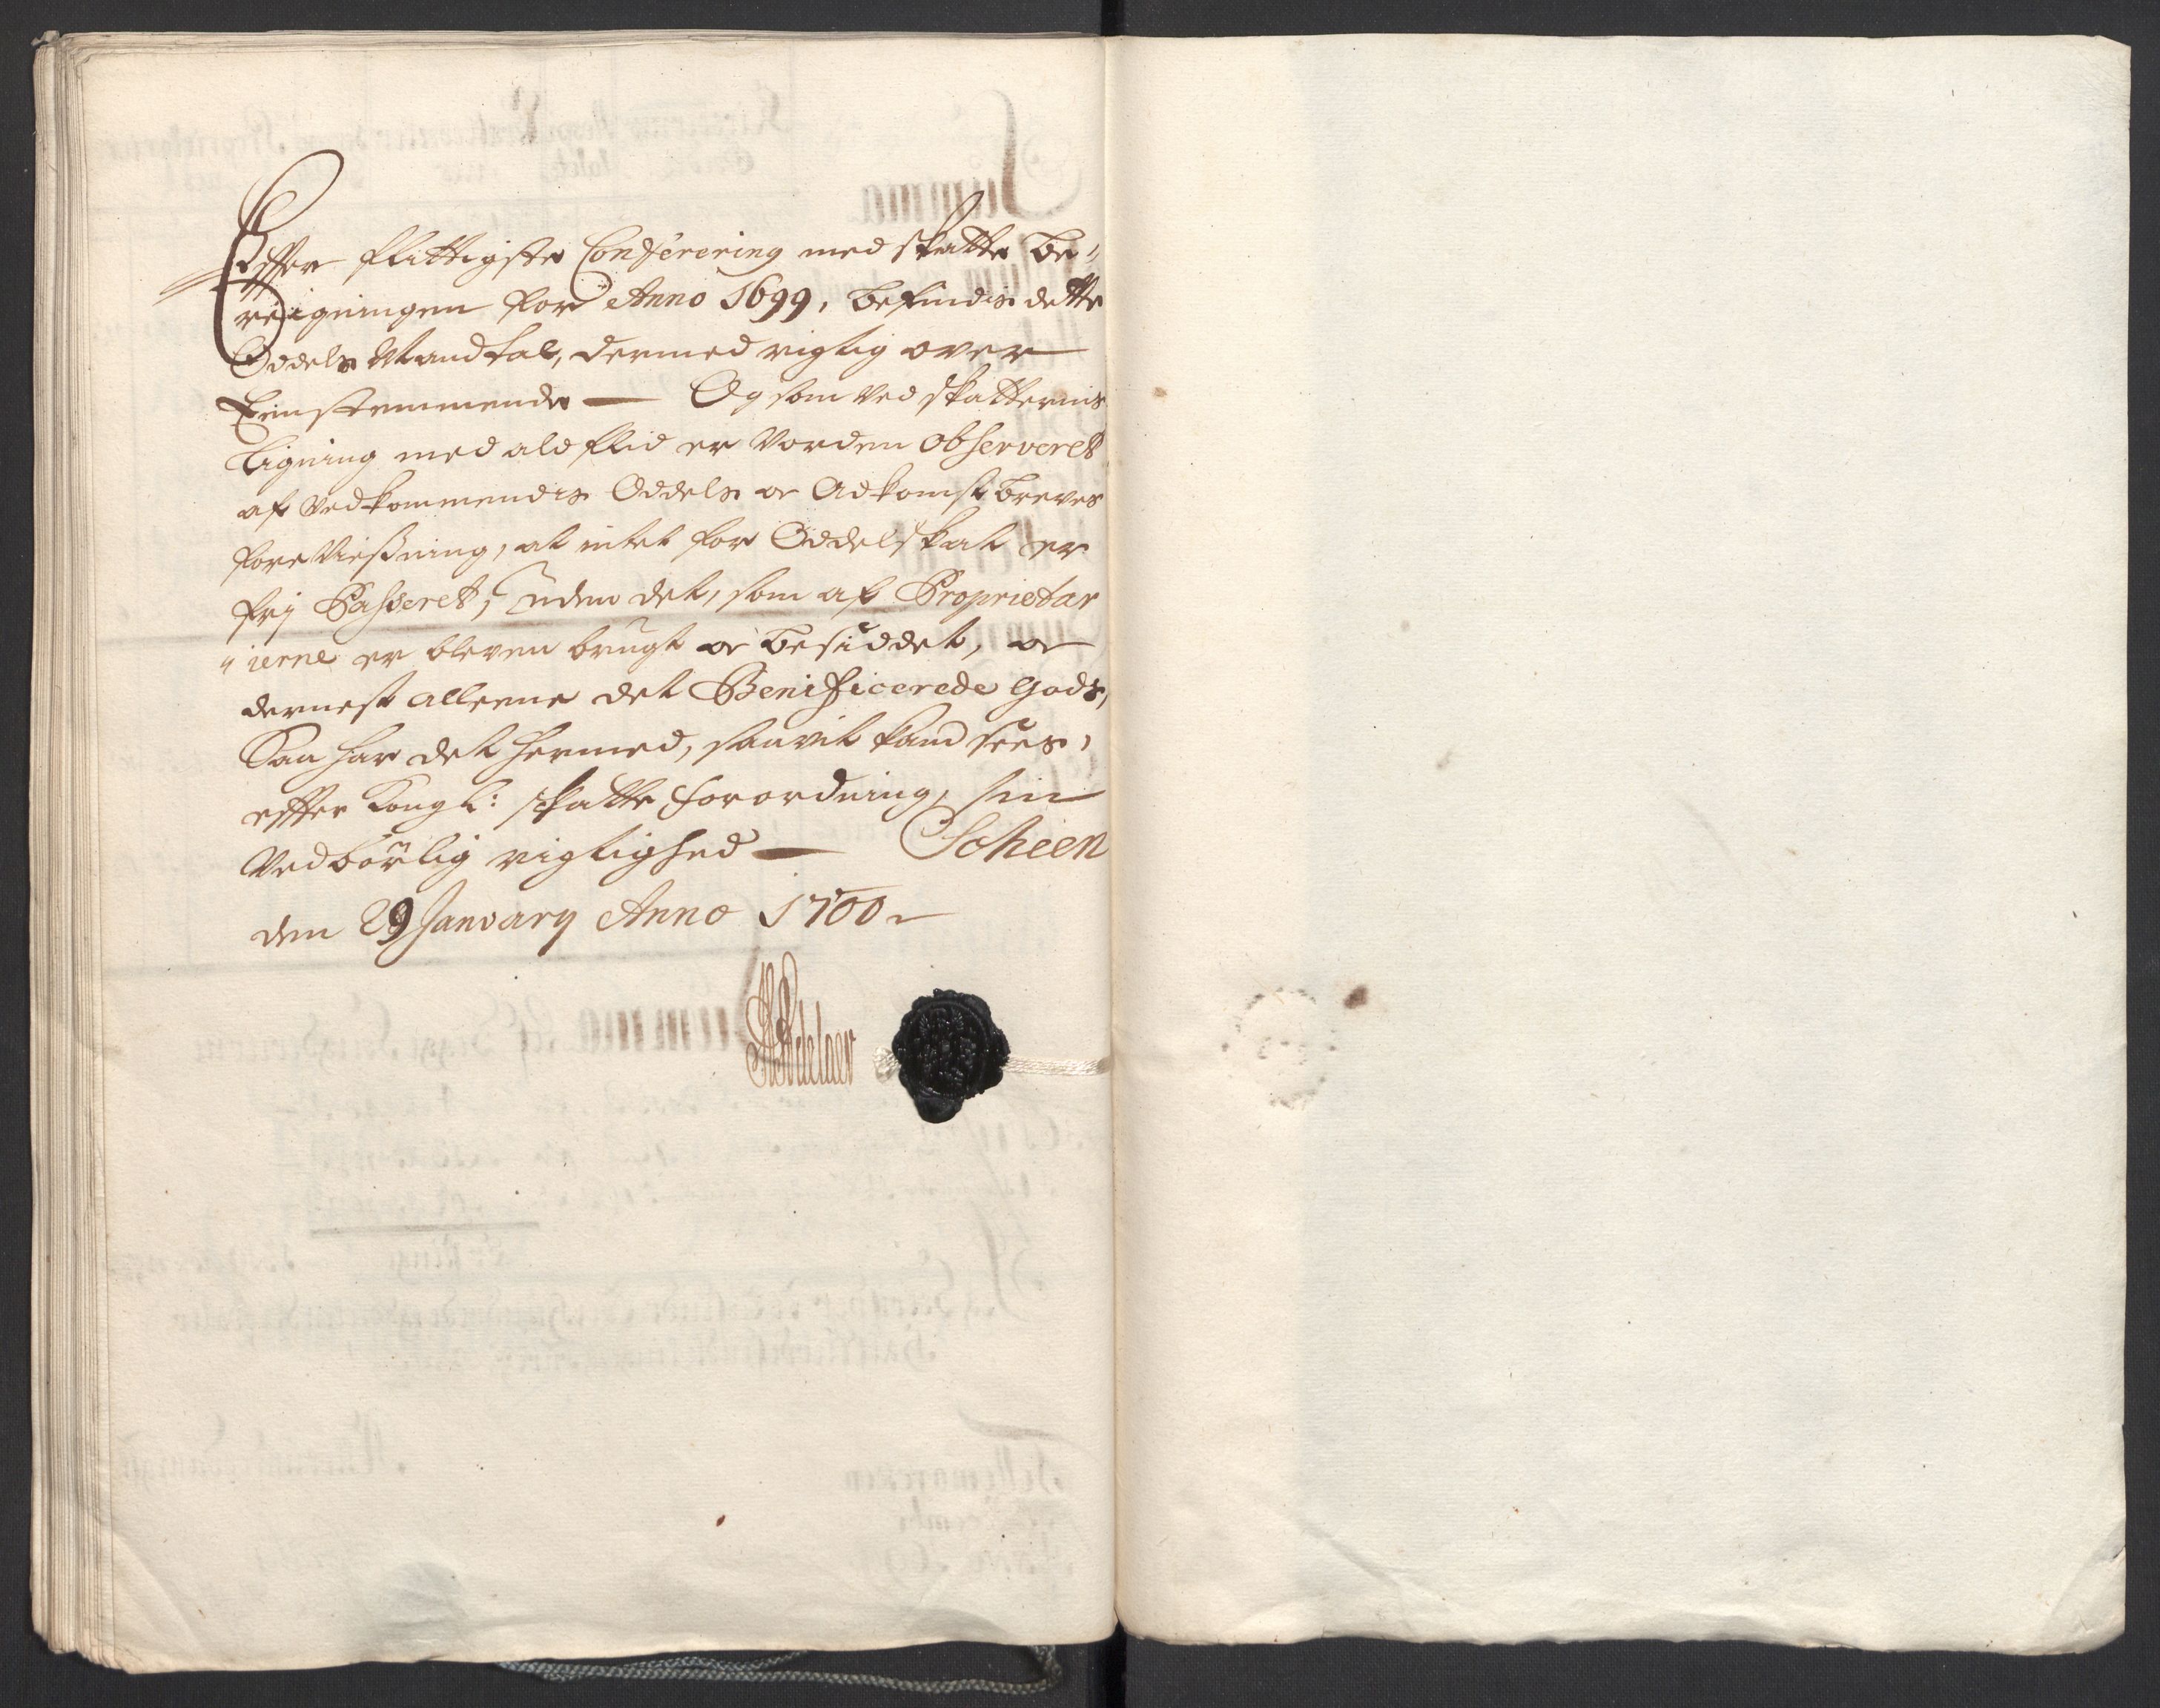 Effter flittigste Conferering med skatte Be¬
reigningen for Anno 1699, befindis dette
Oddels Mandtal, dermed rigtig over
Eenstemmende — Og som ved skatternis
Ligning med ald flid er vorden observeret
af vedkommendis Oddels oc Adkomst breves
foreviisning, at intet for Oddelskat er
frj Passeret, uden det, som af Proprietar
ierne er bleven brugt oc besiddet, oc
dernest alleene det Benificerede gods,
Saa har det hermed, saavit kand sees,
effter Kongl: skatte forordning, sin
vedbörlig rigtighed — Scheen
den 29 January Anno 1700
Adelaer